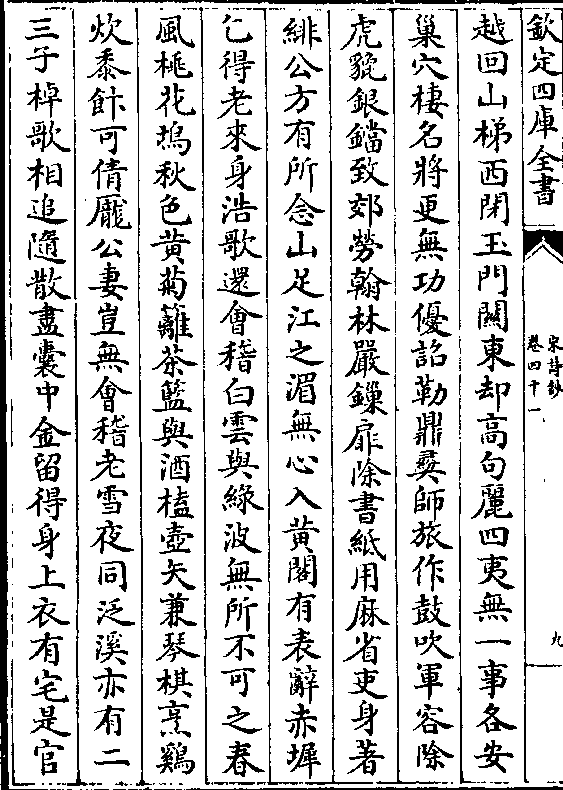 欽定四庫全書
宋詩鈔
卷四十一
九
越回山梯西閉玉門關東却高句麗四夷無一事各安
巢穴棲名將更無功優詔勒鼎彛師旅作鼓吹軍容除
虎貔銀鐺致郊勞翰林嚴鏁扉除書紙用麻省吏身著
緋公方有所念山足江之湄無心入黄閣有表辭赤墀
乞得老來身浩歌還會稽白雲與綠波無所不可之春
風桃花塢秋色黄菊籬茶籃與酒榼壺矢兼琴棋烹鷄
炊黍飰可倩龎公妻豈無會稽老雪夜同泛溪亦有二
三子棹歌相追隨散盡囊中金留得身上衣有宅是官